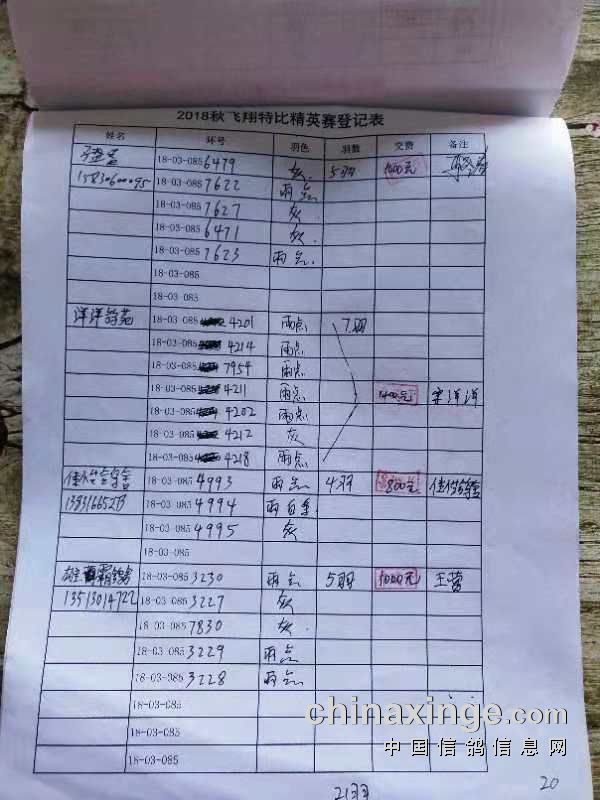 2018秋飞翔特比精英赛登记表
姓名 环号 羽色 羽数 交费 备注
18-03-085 6479 灰 5羽 1000元
15830600095 18-03-085 7622 雨点
18-03-085 7627 灰
18-03-085 6471 灰
18-03-085 7623 雨点
18-03-085
18-03-085
洋洋鸽苑 18-03-085 4201 雨点 7羽
18-03-085 4214 雨点
18-03-085 7954 雨点
18-03-085 4211 雨点 1400元 宋洋洋
18-03-085 4202 雨点
18-03-085 4212 灰
18-03-085 4218 雨点
18-03-085 4993 雨点 4羽 800元
18-03-085 4994 雨白条
18-03-085 4995 灰
18-03-085
18-03-085 3230 雨点 5羽 1000元 王营
13513014722 18-03-085 3227 灰
18-03-085 7830 灰
18-03-085 3229 雨点
18-03-085 3228 雨点
18-03-085
18-03-085
18-03-085
chinaxinge.com
中国信鸽信息网
21羽 20